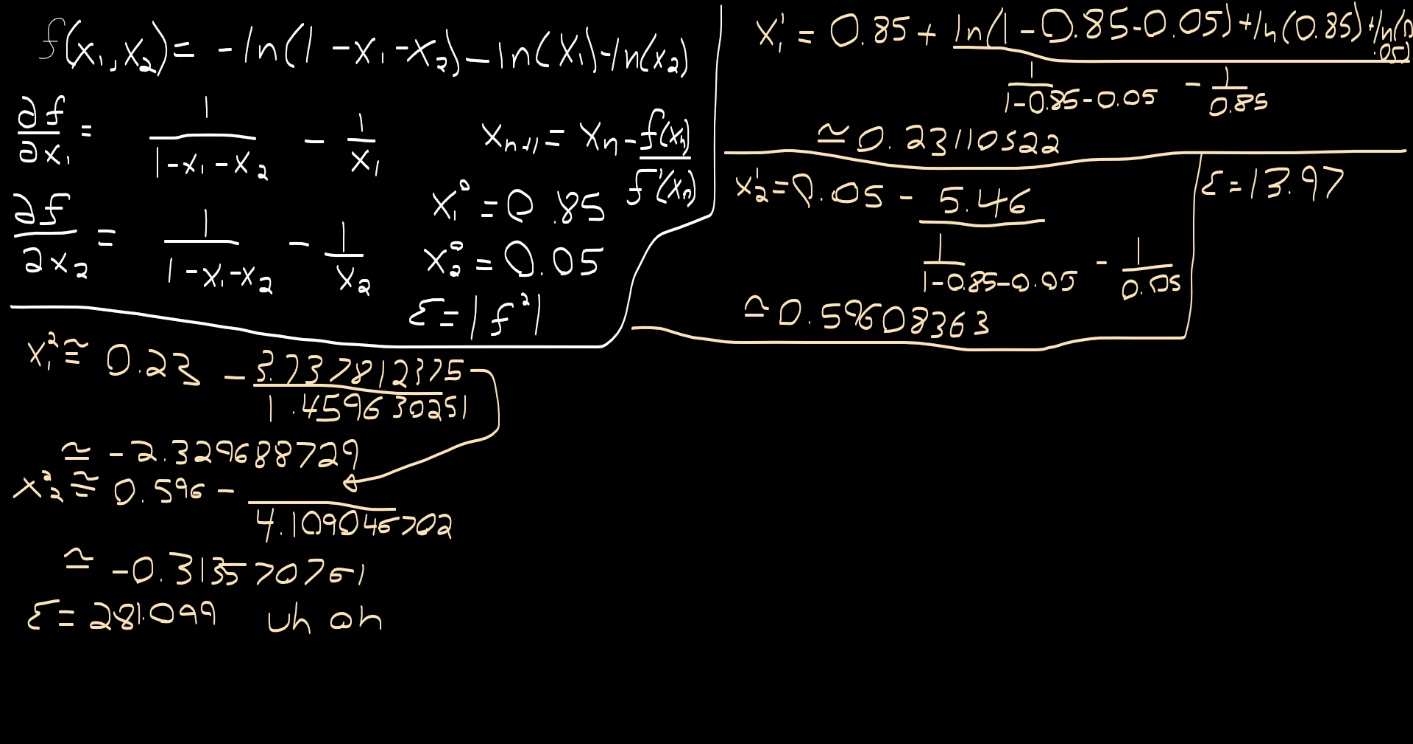 f(x₁,x₂) = -ln(1-x₁-x₂)-ln(x₁)-ln(x₂)
∂f/∂x₁ = 1/(1-x₁-x₂) - 1/x₁
xₙ₊₁ = xₙ - f(xₙ)/f'(xₙ)
x₁⁰ = 0.85
∂f/∂x₂ = 1/(1-x₁-x₂) - 1/x₂
x₂⁰ = 0.05
ε = |f²|
x₁¹ = 0.85 + (ln(1-0.85-0.05)+ln(0.85)+ln(0.05))/(1/(1-0.85-0.05) - 1/0.85)
≃ 0.23110522
x₂¹ = 0.05 - 5.46/(1/(1-0.85-0.05) - 1/0.05)
≃ 0.59608363
ε = 13.97
x₁² ≅ 0.23 - 3.737812375/1.459630251
≃ -2.329688729
x₂² ≅ 0.596 - /4.109045702
≃ -0.313570761
ε = 281.099 uh oh